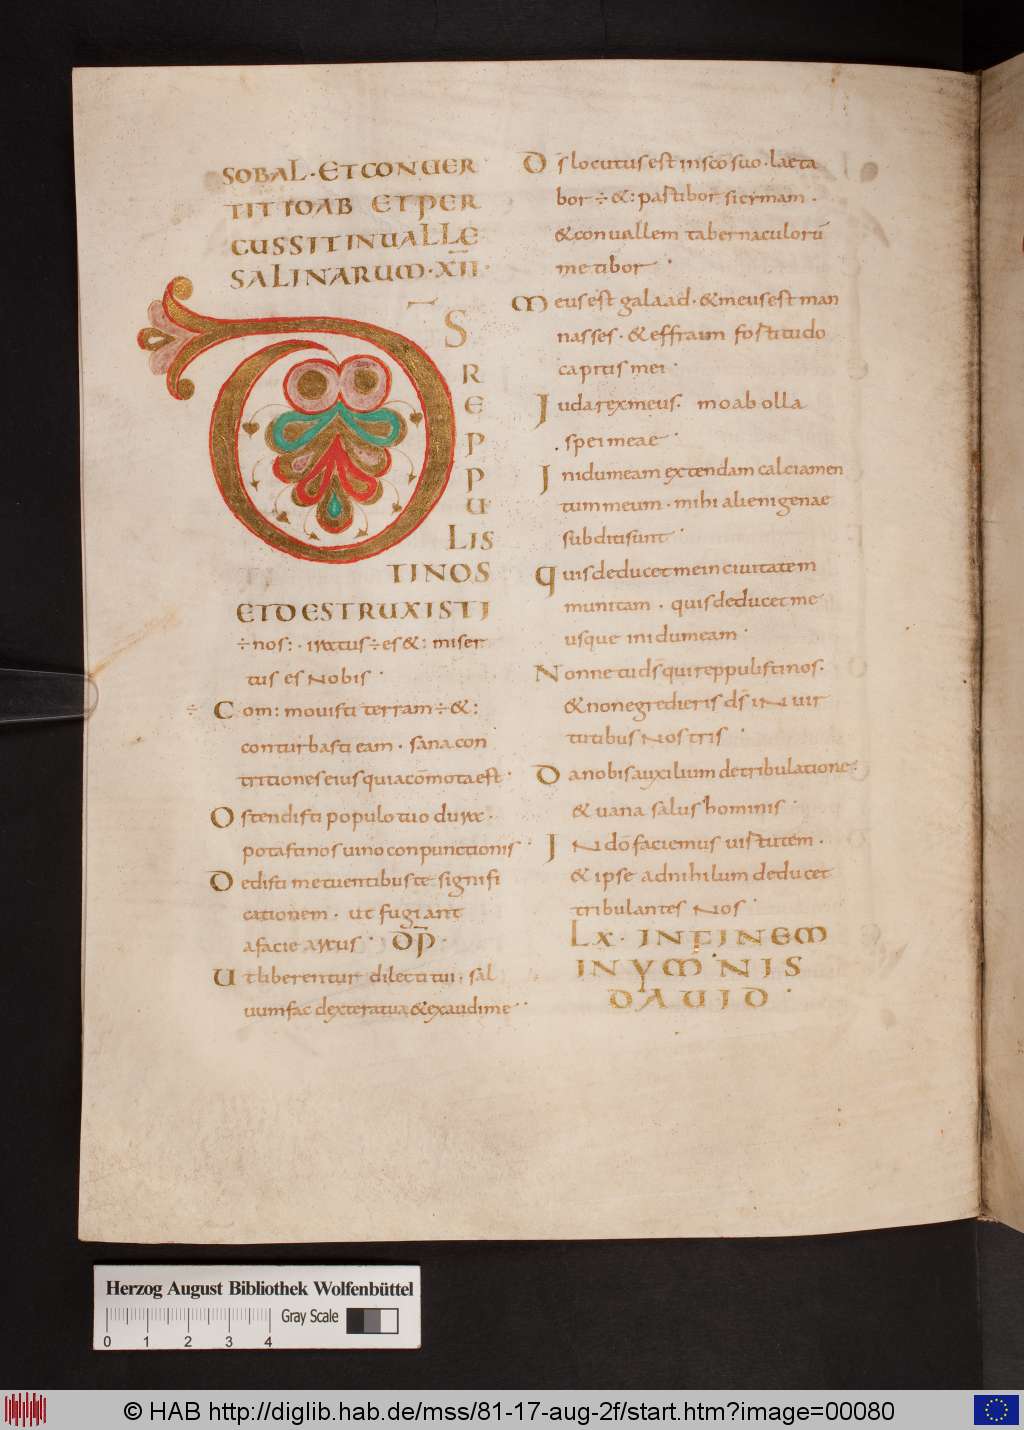 SOBAL · ET CONUER
TIT IOAB ET PER
CUSSIT IN UALLE
SALINARUM · XII ·
D S̄
R
E
P
P
U
LIS
TINOS
ET DESTRUXISTI
÷ nos : · iratus ÷ es & : miser
tus es nobis ·
÷ Com : mouisti terram ÷ & :
conturbasti eam · sana con
tritiones eius quia cōmota est ·
Ostendisti populo tuo dura ·
potasti nos uino conpunctionis ·
Dedisti metuentibus te signifi
cationem · ut fugiant
a facie arcus · DP̄ ·
Ut liberentur dilecti tui · sal
uum fac dextera tua & exaudi me ·
Ds̄ locutus est in sc̄o suo · laeta
bor ÷ & : partibor sicimam ·
& conuallem tabernaculorū
metibor ·
Meus est galaad · & meus est man
nasses · & effraim fortitudo
capitis mei ·
Iuda rex meus · moab olla
spei meae ·
In idumeam extendam calciamen
tum meum · mihi alienigenae
subditi sunt ·
Quis deducet me in ciuitatem
munitam · quis deducet me
usque in idumeam ·
Nonne tu ds̄ qui reppulisti nos ·
& non egredieris ds̄ in uir
tutibus nostris ·
Da nobis auxilium de tribulatione ·
& uana salus hominis ·
In dō faciemus uirtutem ·
& ipse ad nihilum deducet
tribulantes nos ·
LX · IN FINEM
IN YMNIS
DAUID ·
Herzog August Bibliothek Wolfenbüttel
Gray Scale
0 1 2 3 4
© HAB http://diglib.hab.de/mss/81-17-aug-2f/start.htm?image=00080